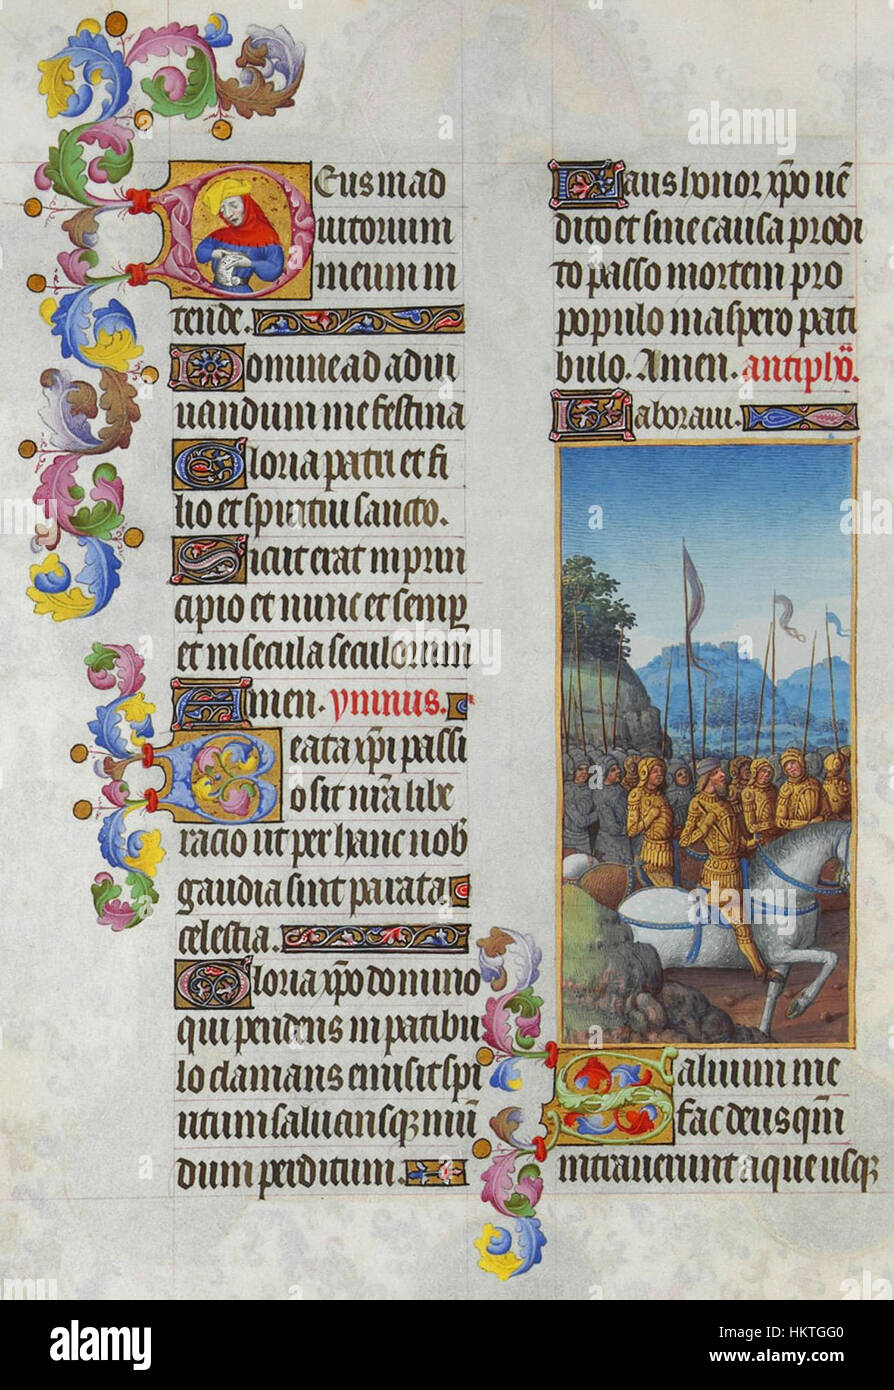 Deus in ad
iutorium
meum in
tende.
Domine ad adiu
uandum me festina
Gloria patri et fi
lio et spiritui sancto.
Sicut erat in prin
cipio et nunc et semp
et in secula seculorum
Amen. ymnus.
Beata xpi passi
o sit nra libe
racio ut per hanc nob
gaudia sint parata
celestia.
Gloria xpo domino
qui pendens in patibu
lo clamans emisit spi
ritum saluansq mun
dum perditum.
Laus honor xpo uen
dito et sine causa prodi
to passo mortem pro
populo in aspero pati
bulo. Amen. antiphō.
Laboraui.
Saluum me
fac deus qm
intrauerunt aque usq
alamy
a
alamy
Image ID: HKTGG0
www.alamy.com